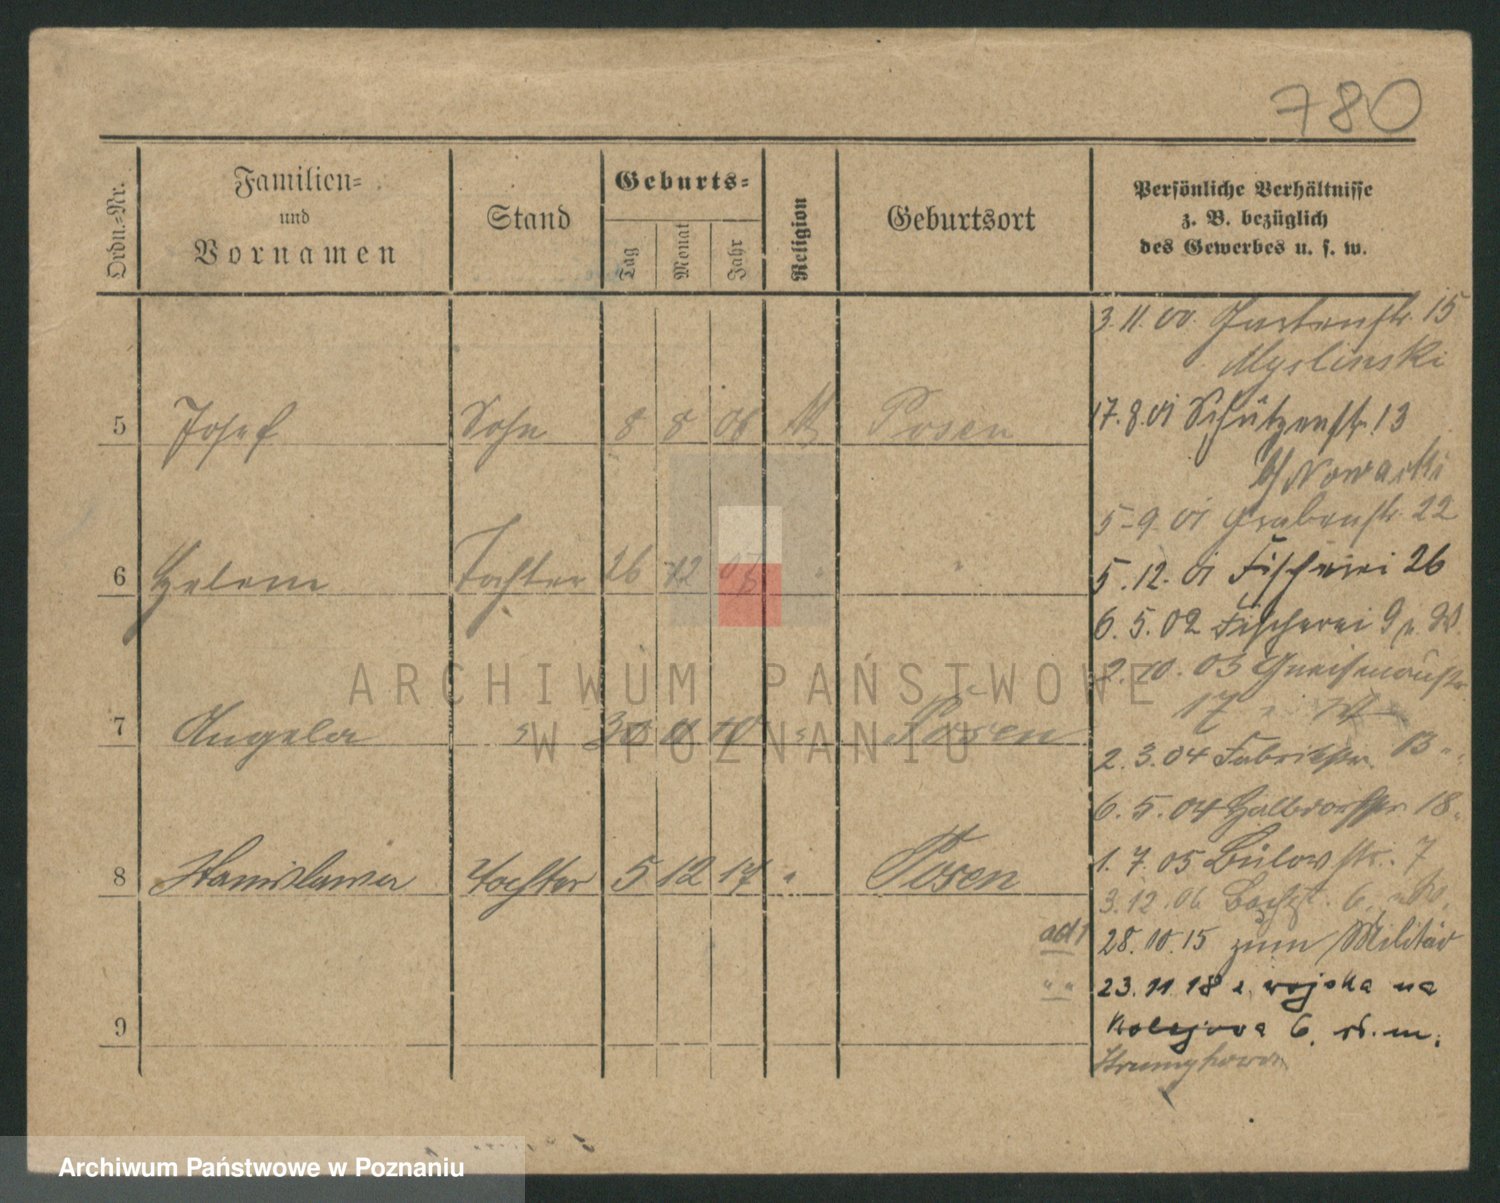 780
Ordn.-Nr.
Familien-
und
Vornamen
Stand
Geburts-
Tag
Monat
Jahr
Religion
Geburtsort
Persönliche Verhältnisse
z. B. bezüglich
des Gewerbes u. s. w.
5 Josef Sohn 8 8 06 Posen
6 Helene Tochter 26 12 "
7 Angela " 30 Posen
8 Stanislawa Tochter 5 12 17 " Posen
9
3.11.00. Gartenstr. 15
Myslinski
17.8.01 Schützenstr. 13
b/ Nowacki
5-9.01 Grabenstr. 22
5.12.01 Fischerei 26
6.5.02 Fischerei 9 u. W.
2.10.03 Gneisenaustr.
17
2.3.04 Fabrikstr. 13 "
6.5.04 Halbdorfstr. 18
1.7.05 Bülowstr. 7
3.12.06 6
ad 1 28.10.15 zum Militär
" " 23.11.18 z wojska na
Kolejowa 6. w. m.
ARCHIWUM PAŃSTWOWE
W POZNANIU
Archiwum Państwowe w Poznaniu